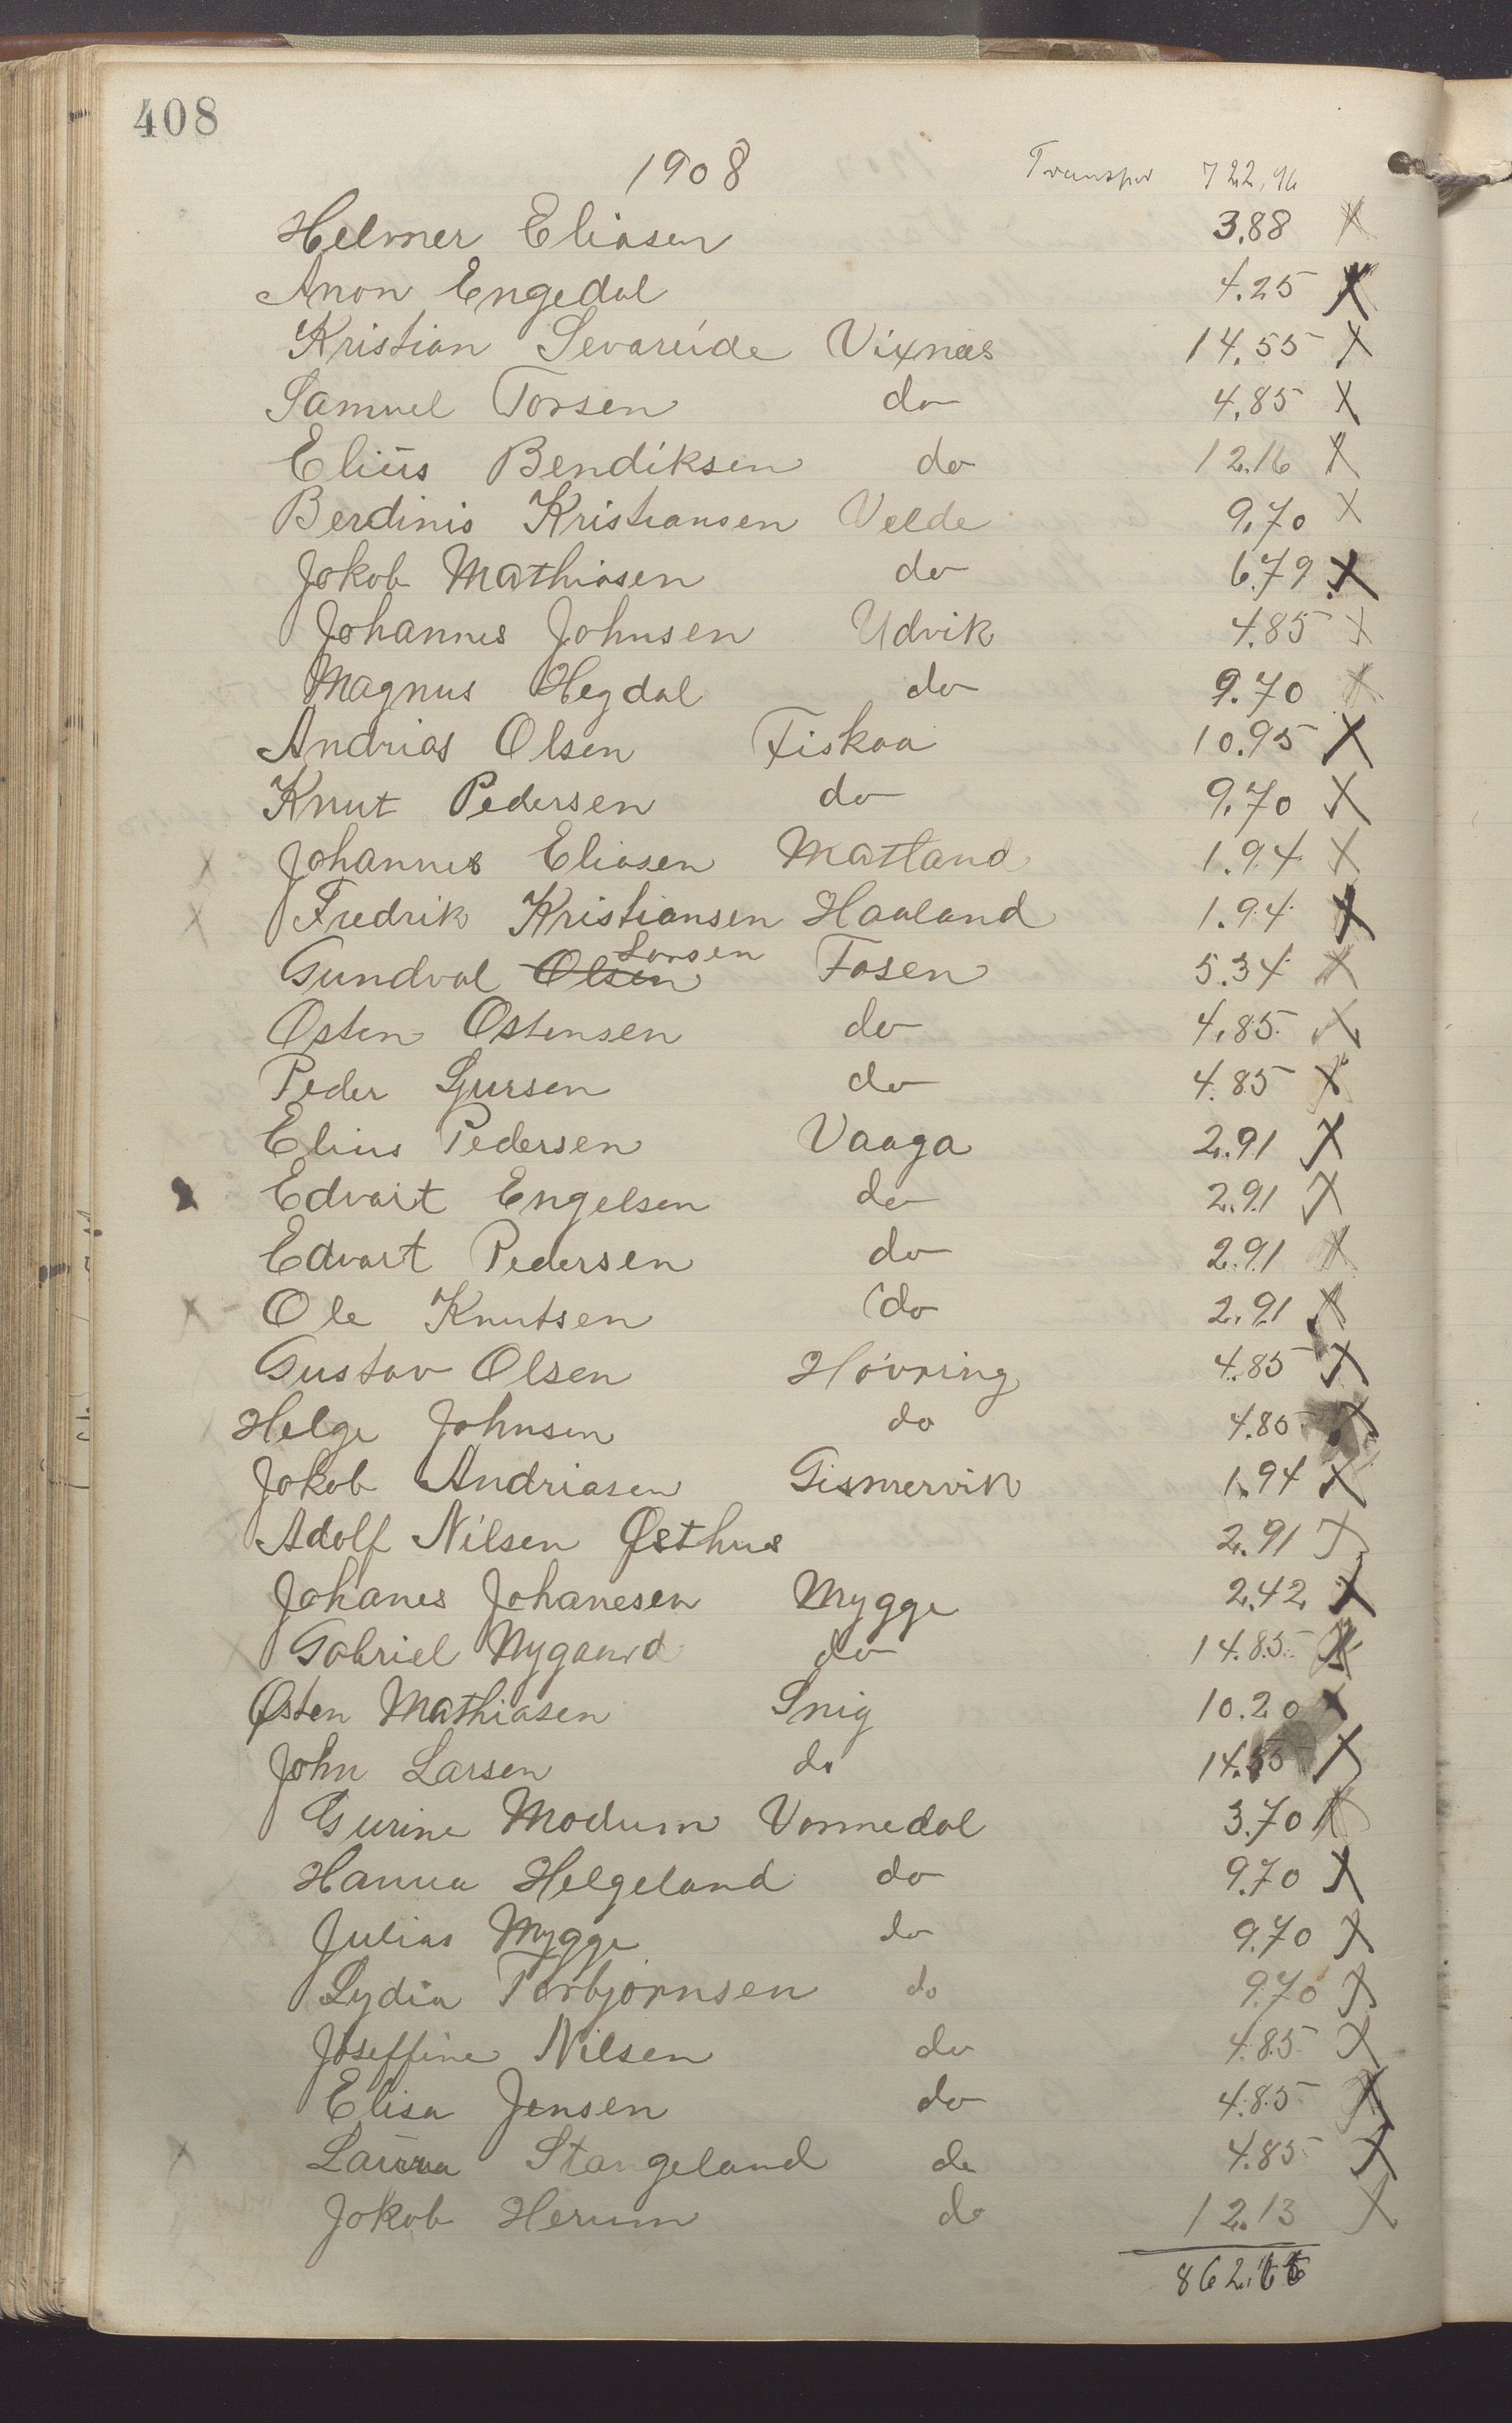 408
1908 Transpor 722,96
Helmer Eliasen 3.88 X
Anon Engedal 4.25 X
Kristian Sevareide Vixnæs 14.55 X
Samuel Torsen do 4.85 X
Eliŭs Bendiksen do 12.16 X
Berdinis Kristiansen Velde 9.70 X
Jakob Mathiasen do 6.79 X
Johannes Johnsen Udvik 4.85 X
Magnus Hegdal do 9.70 X
Andrias Olsen Fiskaa 10.95 X
Knut Pedersen do 9.70 X
X Johannes Eliasen Matland 1.94 X
X Fredrik Kristiansen Haaland 1.94 X
Gundval Olsen Larsen Fosen 5.34 X
Østen Ostensen do 4.85 X
Peder Sjursen do 4.85 X
Elius Pedersen Vaaga 2.91 X
Edvart Engelsen do 2.91 X
Edvart Pedersen do 2.91 X
X Ole Knutsen do 2.91 X
Gustav Olsen Høvring 4.85 X
Helge Johnsen do 4.85 X
Jakob Andriasen Gismervik 1.94 X
Adolf Nilsen Østhus 2.91 X
Johanes Johanesen Mygge 2.42 X
X Gabriel Nygaard do 14.85 X
Østen Mathiasen Snig 10.20 X
John Larsen do 14.55 X
Gurine Modum Vormedal 3.70 X
Hanna Helgeland do 9.70 X
Julias Mygge do 9.70 X
Lydia Torbjørnsen do 9.70 X
Joseffine Nilsen do 4.85 X
Elisa Jensen do 4.85 X
X Laura Stangeland do 4.85 X
Jakob Herum do 12.13 X
862.